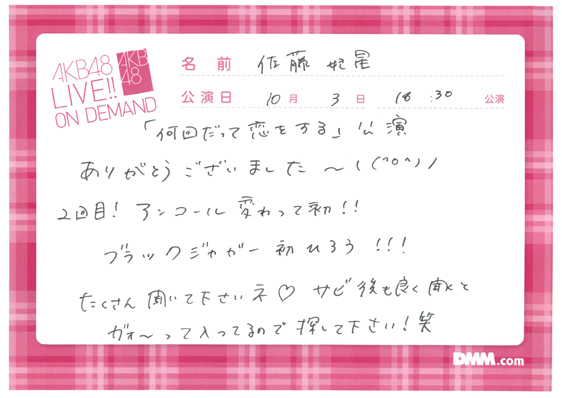 AKB48
LIVE!!
ON DEMAND
AKB
48
名前 佐藤妃星
公演日 10月 3日 18:30 公演
「何回だって恋をする」公演
ありがとうございました〜\(^o^)/
2回目! アンコール変わって初!!
ブラックジャガー初ひろう!!!
たくさん聞いて下さいネ♡ サビ後も良く聞くと
ガオ〜って入ってるので探して下さい!笑
DMM.com